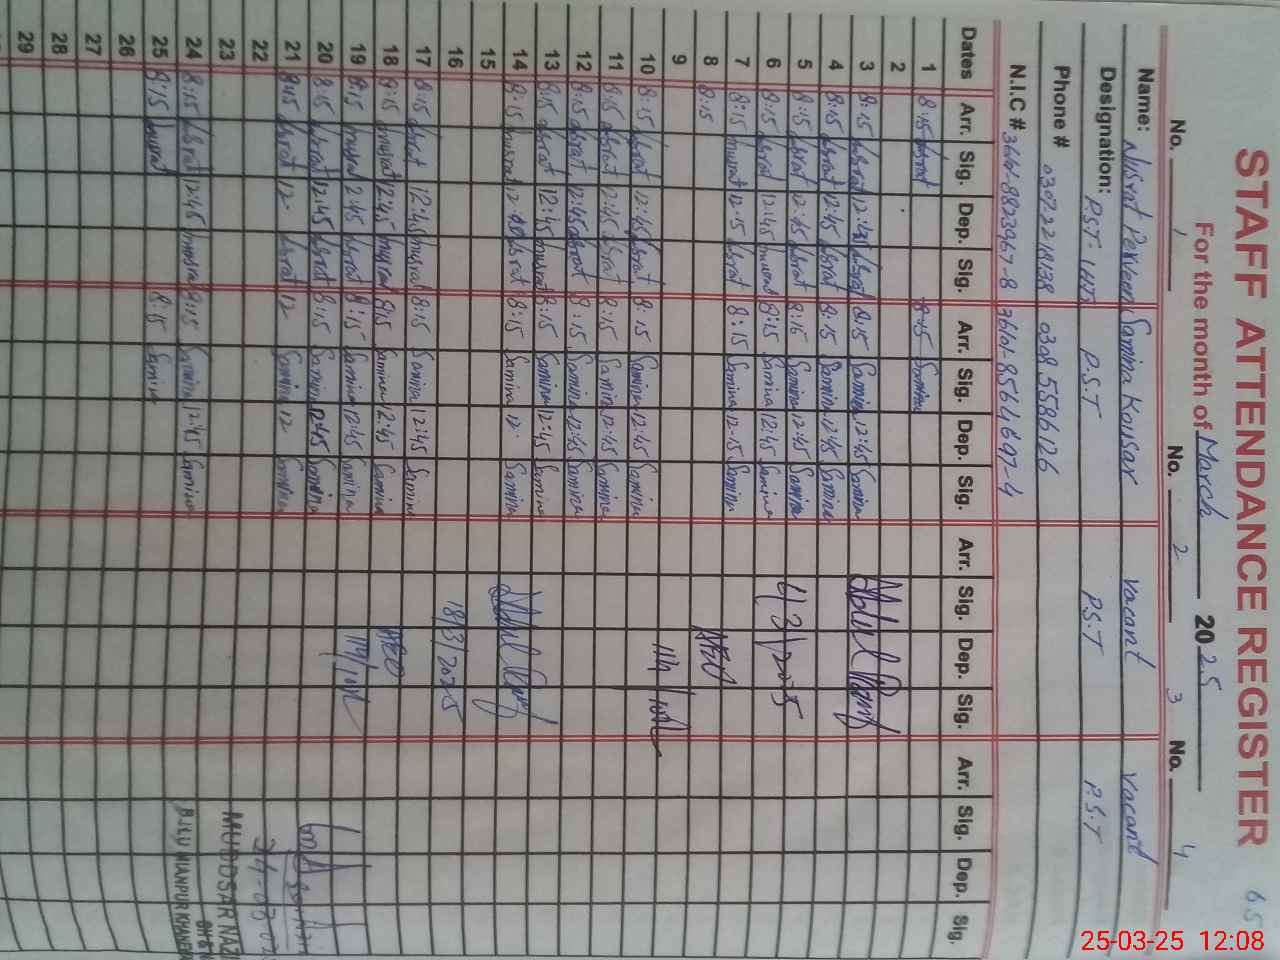 STAFF ATTENDANCE REGISTER
For the month of March 2025
No. 1 No. 2 No. 3 No. 4
Name: Nusrat Perveen Samina Kousar Vacant Vacant
Designation: P.S.T. P.S.T P.S.T P.S.T
Phone # 0308 5586126
N.I.C #
Dates Arr. Sig. Dep. Sig. Arr. Sig. Dep. Sig. Arr. Sig. Dep. Sig. Arr. Sig. Dep. Sig.
1 8:15 Nusrat 8:15 Samina
2
3 8:15 Nusrat 12:45 Nusrat 8:15 Samina 12:45 Samina
4 8:15 Nusrat 12:45 Nusrat 8:15 Samina 12:45 Samina
5 8:15 Nusrat 12:45 Nusrat 8:15 Samina 12:45 Samina
6 8:15 Nusrat 12:45 Nusrat 8:15 Samina 12:45 Samina 4/3/2025
7 8:15 Nusrat 12:15 Nusrat 8:15 Samina 12:15 Samina
8 8:15 AEO
9
10 8:15 Nusrat 12:45 Nusrat 8:15 Samina 12:45 Samina
11 8:15 Nusrat 12:45 Nusrat 8:15 Samina 12:45 Samina
12 8:15 Nusrat 12:45 Nusrat 8:15 Samina 12:45 Samina
13 8:15 Nusrat 12:45 Nusrat 8:15 Samina 12:45 Samina
14 8:15 Nusrat 12 Nusrat 8:15 Samina 12 Samina
15
16 18/3/2025
17 8:15 Nusrat 12:45 Nusrat 8:15 Samina 12:45 Samina
18 8:15 Nusrat 12:45 Nusrat 8:15 Samina 12:45 Samina AEO
19 8:15 Nusrat 2:45 Nusrat 8:15 Samina 12:45 Samina
20 8:15 Nusrat 12:45 Nusrat 8:15 Samina 12:45 Samina
21 8:15 Nusrat 12 Nusrat 8:15 Samina 12 Samina
22
23 MUDDSAR NAZI
24 8:15 Nusrat 12:45 Nusrat 8:15 Samina 12:45 Samina
25 8:15 Nusrat 8:15 Samina
26
27
28
29
25-03-25 12:08